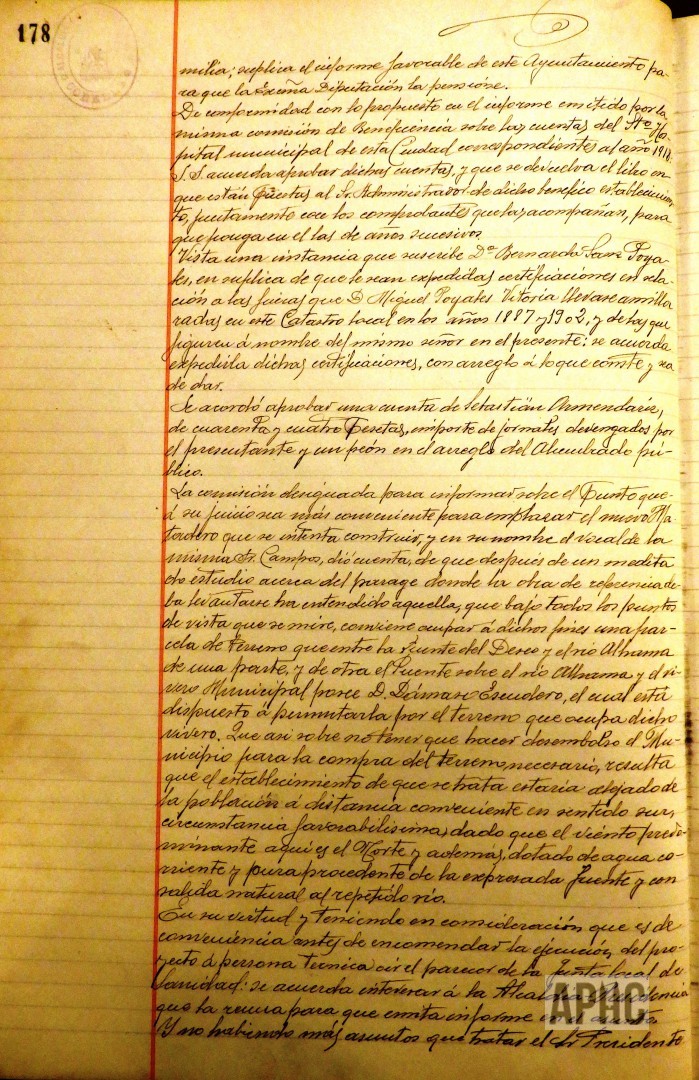 178
milia; suplica el informe favorable de este Ayuntamiento pa-
ra que la Excma Diputación la pensione.
De conformidad con lo propuesto en el informe emitido por la
misma comisión de Beneficencia sobre las cuentas del Sto. Hos-
pital municipal de esta Ciudad correspondientes al año 1914:
S.S. acuerda aprobar dichas cuentas, y que se devuelva el libro en
que están puestas al Sr. Administrador de dicho benéfico establecimien-
to, juntamente con los comprobantes que las acompañan, para
que ponga en él las de años sucesivos.
Vista una instancia que suscribe Dª Bernarda Sanz Poya-
les, en suplica de que le sean expedidas certificaciones en rela-
ción a las fincas que D. Miguel Poyales Vitoria llevase amilla-
radas en este Catastro local en los años 1887 y 1902, y de las que
figuren á nombre del mismo señor en el presente: se acuerda
expedirla dichas certificaciones, con arreglo á lo que conste y sea
de dar.
Se acordó aprobar una cuenta de Sebastián Armendáriz,
de cuarenta y cuatro pesetas, importe de jornales devengados por
el presentante y un peón en el arreglo del Alumbrado pú-
blico.
La comisión designada para informar sobre el Punto que
á su juicio sea más conveniente para emplazar el nuevo Ma-
tadero que se intenta construir, y en su nombre el vocal de la
misma Sr. Campos, dió cuenta, de que después de un medita-
do estudio acerca del parage donde la obra de referencia de-
ba levantarse ha entendido aquella, que bajo todos los puntos
de vista que se mire, conviene ocupar á dichos fines una par-
cela de terreno que entre la Fuente del Deseo y el río Alhama
de una parte, y de otra el Puente sobre el río Alhama y el vi-
vero Municipal posee D. Dámaso Escudero, el cual está
dispuesto á permutarla por el terreno que ocupa dicho
vivero. Que asi sobre no tener que hacer desembolso el Mu-
nicipio para la compra del terreno necesario, resulta
que el establecimiento de que se trata estaría alejado de
la población á distancia conveniente en sentido sur,
circunstancia favorabilísima, dado que el viento predo-
minante aquí es el Norte y además, dotado de agua co-
rriente y pura procedente de la expresada fuente y con
salida natural al repetido río.
En su virtud y teniendo en consideración que es de
conveniencia antes de encomendar la ejecución del pro-
yecto á persona tecnica oir el parecer de la Junta local de
Sanidad: se acuerda interesar á la Alcaldía Presidencia
que la reuna para que emita informe en el asunto.
Y no habiendo más asuntos que tratar el Sr Presidente
APHC